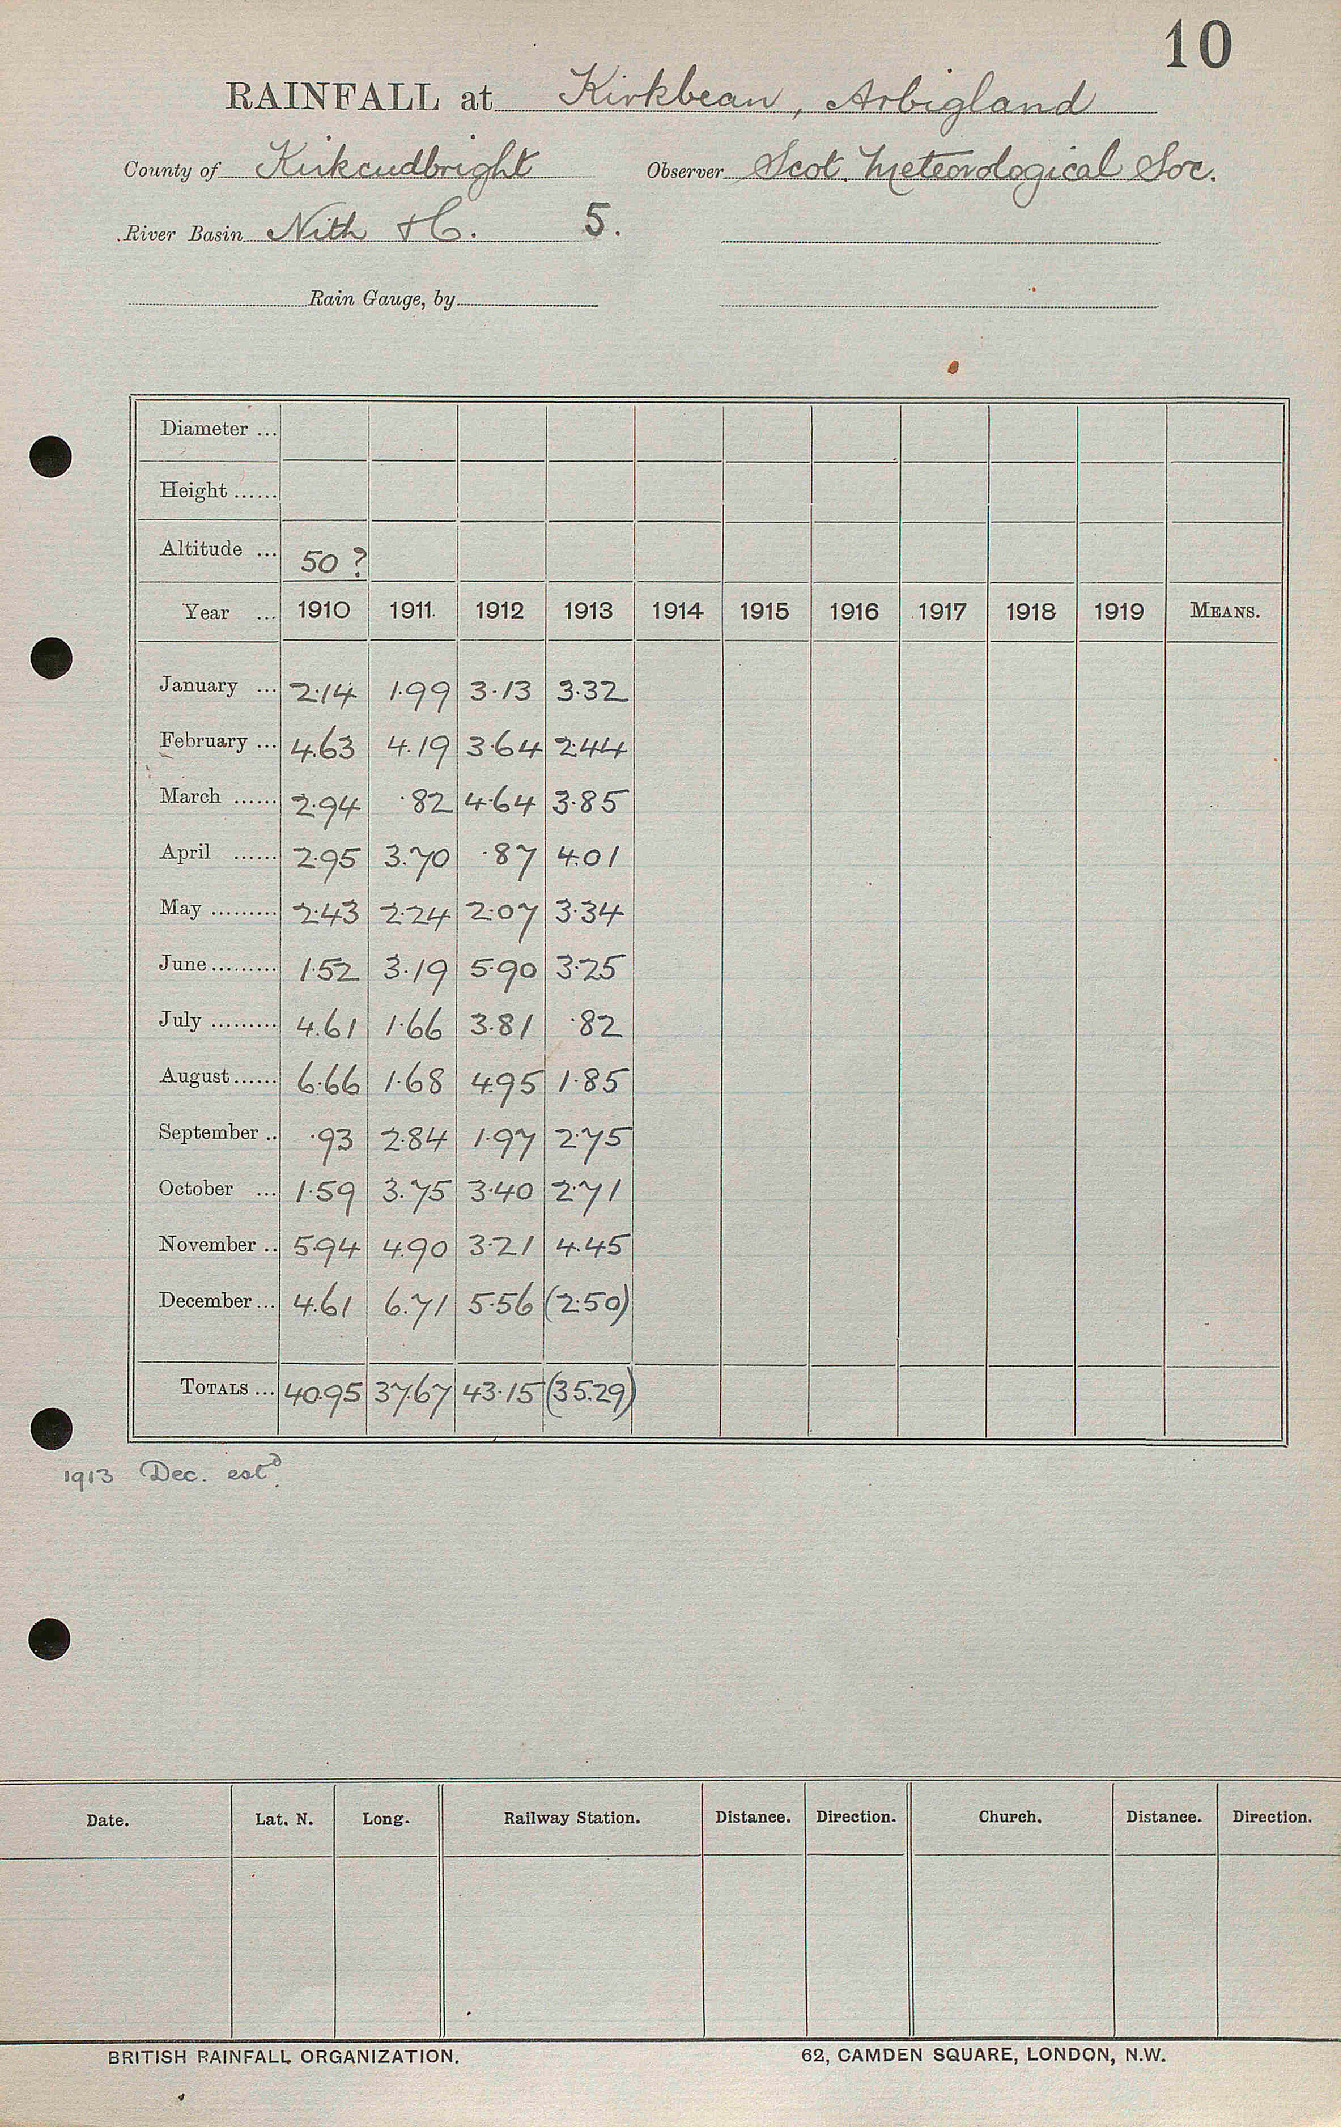 10
RAINFALL at Kirkbean, Arbigland
County of Kirkcudbright Observer Scot. Meteorological Soc.
River Basin Nith &C. 5.
Rain Gauge, by
Diameter ...
Height ......
Altitude ... 50 ?
Year ... 1910 1911 1912 1913 1914 1915 1916 1917 1918 1919 MEANS.
January ... 2.14 1.99 3.13 3.32
February ... 4.63 4.19 3.64 2.44
March ...... 2.94 .82 4.64 3.85
April ...... 2.95 3.70 .87 4.01
May ......... 2.43 2.24 2.07 3.34
June ......... 1.52 3.19 5.90 3.25
July ......... 4.61 1.66 3.81 .82
August ...... 6.66 1.68 4.95 1.85
September .. .93 2.84 1.97 2.75
October ... 1.59 3.75 3.40 2.71
November .. 5.94 4.90 3.21 4.45
December ... 4.61 6.71 5.56 (2.50)
TOTALS ... 40.95 37.67 43.15 (35.29)
1913 Dec. estd.
Date. Lat. N. Long. Railway Station. Distance. Direction. Church. Distance. Direction.
BRITISH RAINFALL ORGANIZATION. 62, CAMDEN SQUARE, LONDON, N.W.